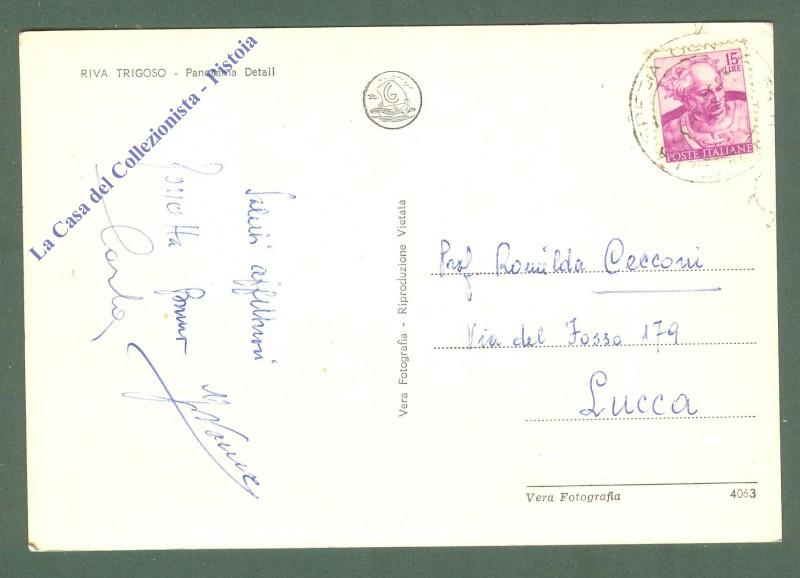 RIVA TRIGOSO - Panorama Detail
La Casa del Collezionista - Pistoia
15 LIRE
POSTE ITALIANE
Saluti affettuosi
Bruno
Carla
Vera Fotografia - Riproduzione Vietata
Prof Romilda Cecconi
Via del Fosso 179
Lucca
Vera Fotografia 4063